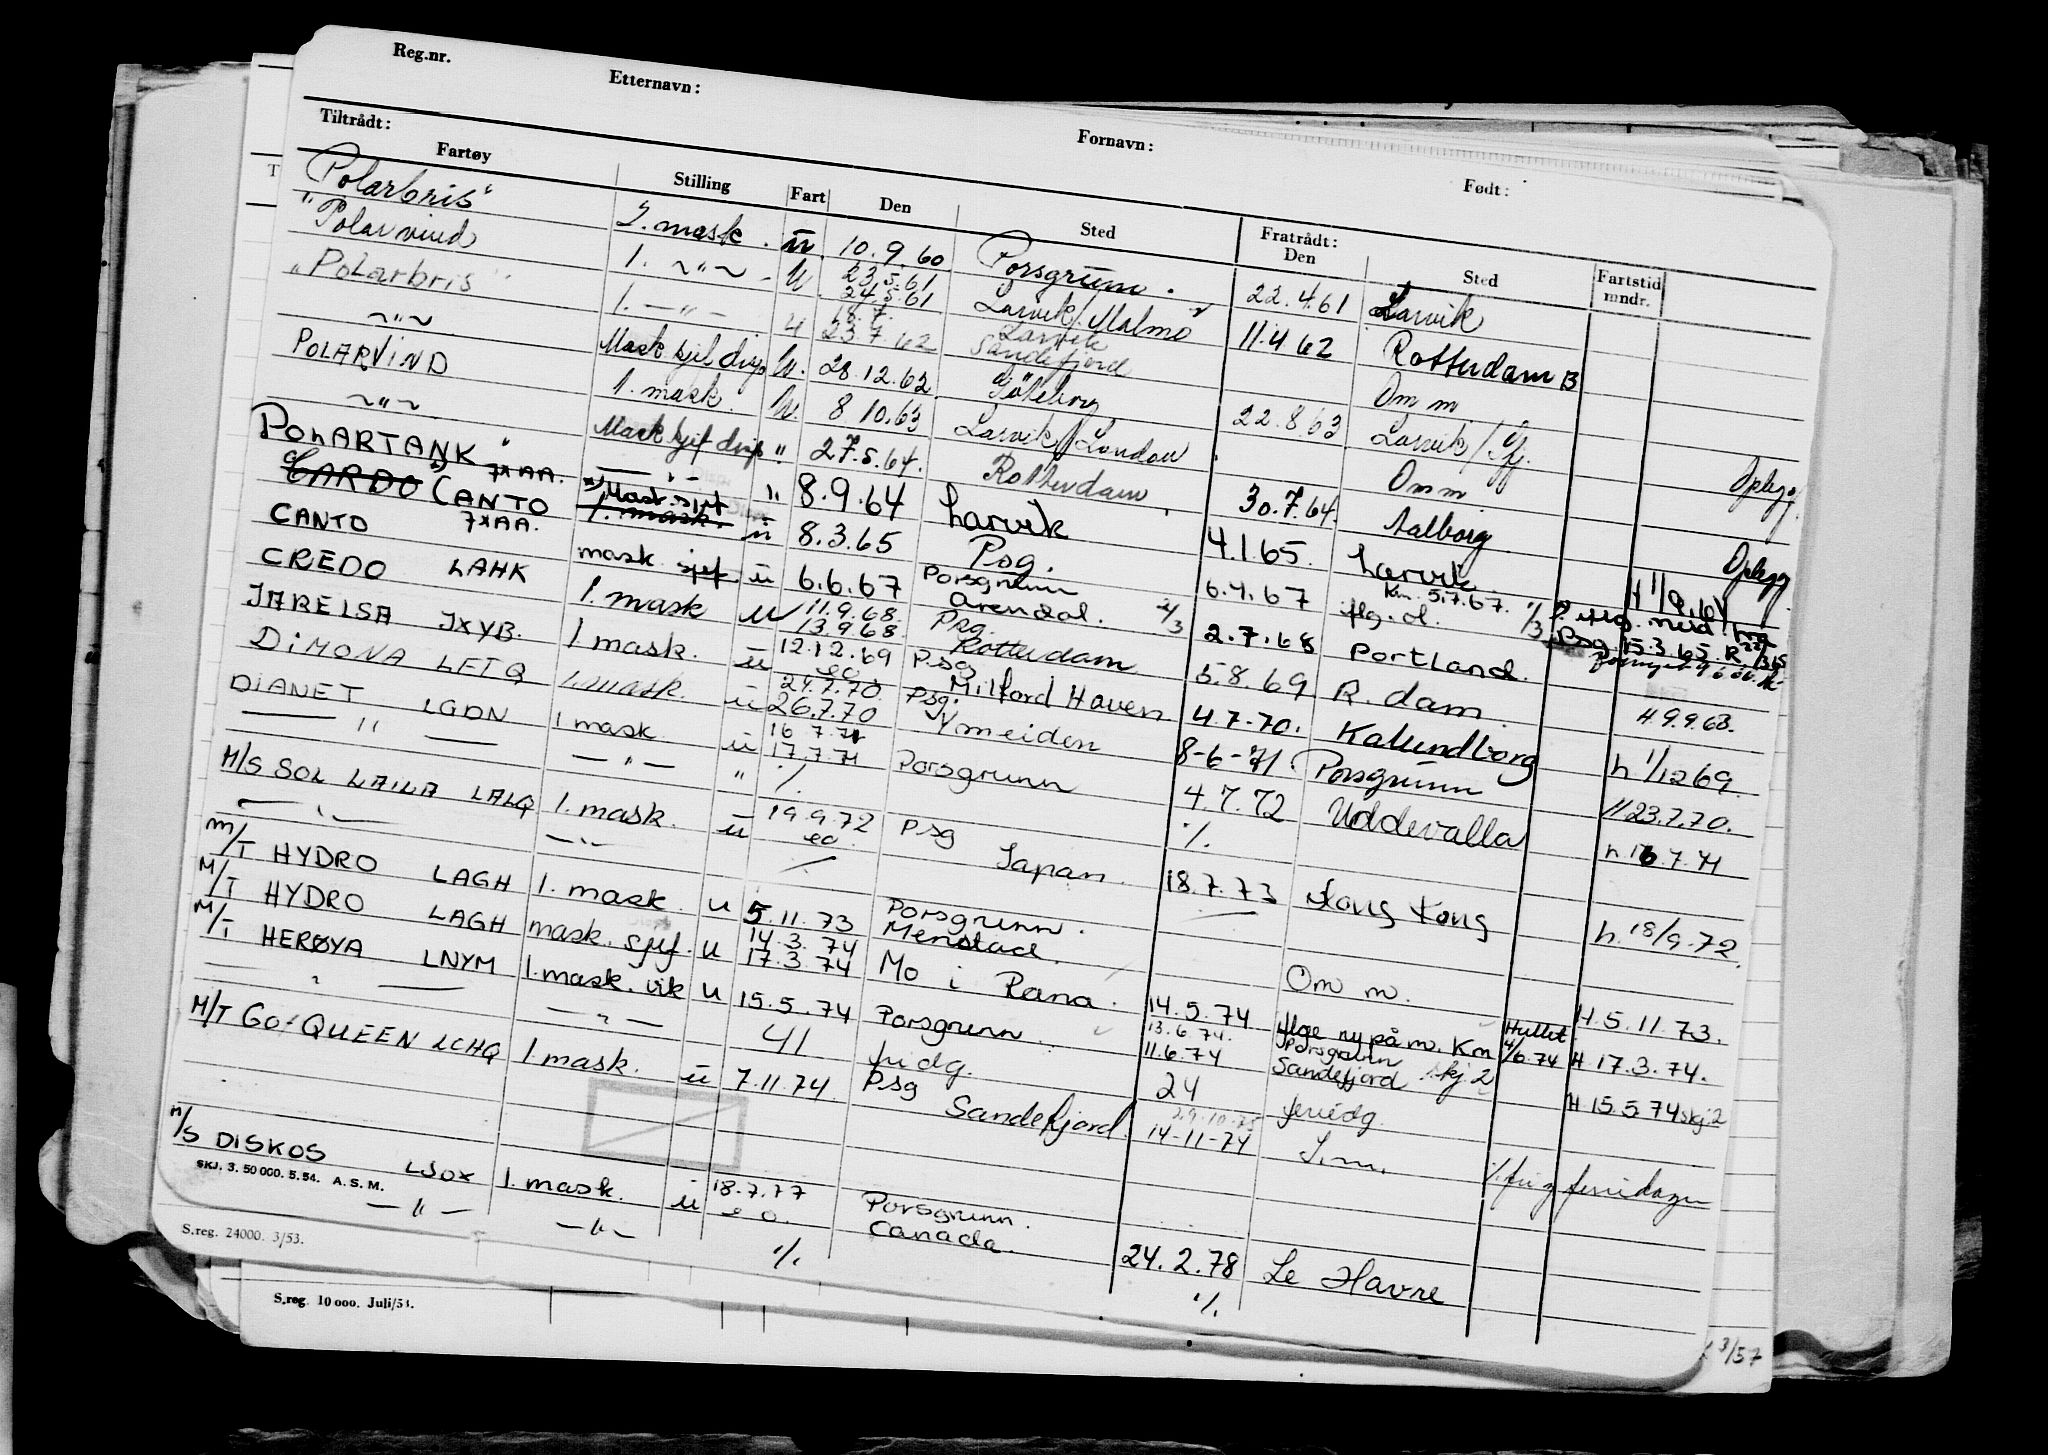 Reg.nr. Etternavn: Fornavn: Født:
Tiltrådt: Fratrådt:
Fartøy Stilling Fart Den Sted Den Sted Fartstid mndr.
"Polarbris" 2. mask. ü. 10.9.60 Porsgrunn. 22.4.61 Larvik
"Polarvind 1. ~"~ - U. 23.5.61 24.5.61 Larvik/Malmö 11.4.62 Rotterdam
"Polarbris" 1. —"— 4 18.7. 23.7.62 Larvik Sandefjord Om m
~"~ Mask kjif disp U. 28.12.62 Göteborg 22.8.63 Larvik/
POLARVIND 1. mask. U. 8 10.63 Larvik/London Om m Oplegg
~"~ Mask kjif disp " 27.5.64. Rotterdam 30.7.64. Aalborg
POLARTANK " — " — " 8.9.64 Larvik 4.1.65. Larvik Oplegg
CARDO CANTO 7XAA. Mask.sjef 1. mask. ü 8.3.65 Psg. 6.4.67 Km. 5.7.67.
CANTO 7XAA. mask. sjef. ü 6.6.67 Porsgrunn Arendal. 2/3 2.7.68 Portland. Psg. 15.3.65
CREDO LAHK 1. mask U 11.9.68. 13.9.68 Psg. Rotterdam 5.8.69 R.dam. H 9.9.68.
JARELSA JXYB. 1 mask. ü 12.12.69 eo. Psg Milford Haven 4.7.70. Kalundborg h 1/12 69.
DIMONA LFTQ 1. mask. ü 24.7.70. 26.7.70 Psg. Ymeiden 8-6-71. Porsgrunn 23.7.70.
DIANET LGDN 1 mask ü 16 7.71 17.7.71 Porsgrunn 4.7.72 Uddevalla h 16.7.71
— " — — " — " %. %.
M/S SOL LAILA LALQ 1. mask. ü 19.9.72 eo. Psg Japan. 18.7.73 Hong Kong h. 18/9.72.
— " — — " — /
M/T HYDRO LAGH 1. mask. U 5.11.73 Porsgrunn. Om m. H. 5.11.73.
M/T HYDRO LAGH mask. sjef. U 14.3.74 17.3.74 Menstad. Mo i Rana. 14.5.74 flge ny på m. Km Hullet 4/6.74 H 17.3.74.
M/T HERØYA LNYM 1. mask. vik U 15.5.74 Porsgrunn 13.6.74. 11.6.74 Porsgrunn Sandefjord skj.2 H 15.5.74 skj.2
— " — — " — 41 fridg. 24 feriedg.
M/T GO-QUEEN LCHQ 1. mask. ü 7.11.74 Psg Sandefjord. 29.10.75 14-11-74 %. fri feriedager
M/S DISKOS LJOX 1. mask. ü 18.7.77 eo. Porsgrunn. Canada. 24.2.78 Le Havre
SKJ. 3. 50 000. 5.54. A. S. M.
— " — — " — %. %.
S.reg. 24000. 3/53.
S.reg. 10 000. Juli/53.
3/57